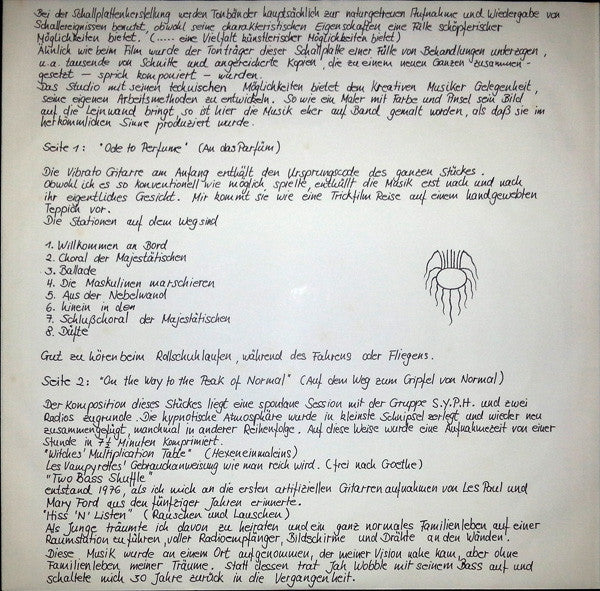 Bei der Schallplattenherstellung werden Tonbänder hauptsächlich zur naturgetreuen Aufnahme und Wiedergabe von
Schallereignissen benutzt, obwohl seine charakteristischen Eigenschaften eine Fülle schöpferischer
Möglichkeiten bietet. (..... eine Vielfalt künstlerischer Möglichkeiten bietet)
Ähnlich wie beim Film wurde der Tonträger dieser Schallplatte einer Fülle von Behandlungen unterzogen,
u.a. tausende von Schnitte und angereicherte Kopien, die zu einem neuen Ganzen zusammen-
gesetzt – sprich komponiert – wurden.
Das Studio mit seinen technischen Möglichkeiten bietet dem Kreativen Musiker Gelegenheit,
seine eigenen Arbeitsmethoden zu entwickeln. So wie ein Maler mit Farbe und Pinsel sein Bild
auf die Leinwand bringt, so ist hier die Musik eher auf Band gemalt worden, als daß sie im
herkömmlichen Sinne produziert wurde.
Seite 1: "Ode to Perfume" (An das Parfüm)
Die Vibrato Gitarre am Anfang enthält den Ursprungscode des ganzen Stückes.
Obwohl ich es so konventionell wie möglich spielte, enthüllt die Musik erst nach und nach
ihr eigentliches Gesicht. Mir kommt sie wie eine Trickfilm Reise auf einem handgewebten
Teppich vor.
Die Stationen auf dem Weg sind
1. Willkommen an Bord
2. Choral der Majestätischen
3. Ballade
4. Die Maskulinen marschieren
5. Aus der Nebelwand
6. hinein in den
7. Schlußchoral der Majestätischen
8. Düfte
Gut zu hören beim Rollschuhlaufen, während des Fahrens oder Fliegens.
Seite 2: "On the Way to the Peak of Normal" (Auf dem Weg zum Gipfel von Normal)
Der Komposition dieses Stückes liegt eine spontane Session mit der Gruppe S.Y.P.H. und zwei
Radios zugrunde. Die hypnotische Atmosphäre wurde in kleinste Schnipsel zerlegt und wieder neu
zusammengefügt, manchmal in anderer Reihenfolge. Auf diese Weise wurde eine Aufnahmezeit von einer
Stunde in 7½ Minuten komprimiert.
"Witches' Multiplication Table" (Hexeneinmaleins)
Les Vampyrettes' Gebrauchanweisung wie man reich wird. (frei nach Goethe)
"Two Bass Shuffle"
entstand 1976, als ich mich an die ersten artifiziellen Gitarrenaufnahmen von Les Paul und
Mary Ford aus den fünfziger Jahren erinnerte.
"Hiss 'N' Listen" (Rauschen und Lauschen)
Als Junge träumte ich davon zu heiraten und ein ganz normales Familienleben auf einer
Raumstation zu führen, voller Radioempfänger, Bildschirme und Drähte an den Wänden.
Diese Musik wurde an einem Ort aufgenommen, der meiner Vision nahe kam, aber ohne
Familienleben meiner Träume. Statt dessen trat Jah Wobble mit seinem Bass auf und
schaltete mich 30 Jahre zurück in die Vergangenheit.